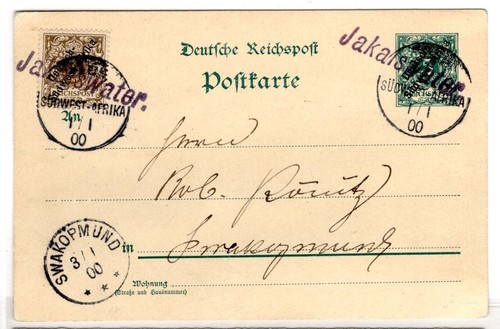 Deutsche Reichspost
Postkarte
Jakalswater.
Jakalswater.
SÜDWEST-AFRIKA
1/1
00
SÜDWEST-AFRIKA
1/1
00
REICHSPOST
An
Herrn
Rob.
in Swakopmund
SWAKOPMUND
3/1
00
* * *
Wohnung
(Straße und Hausnummer)